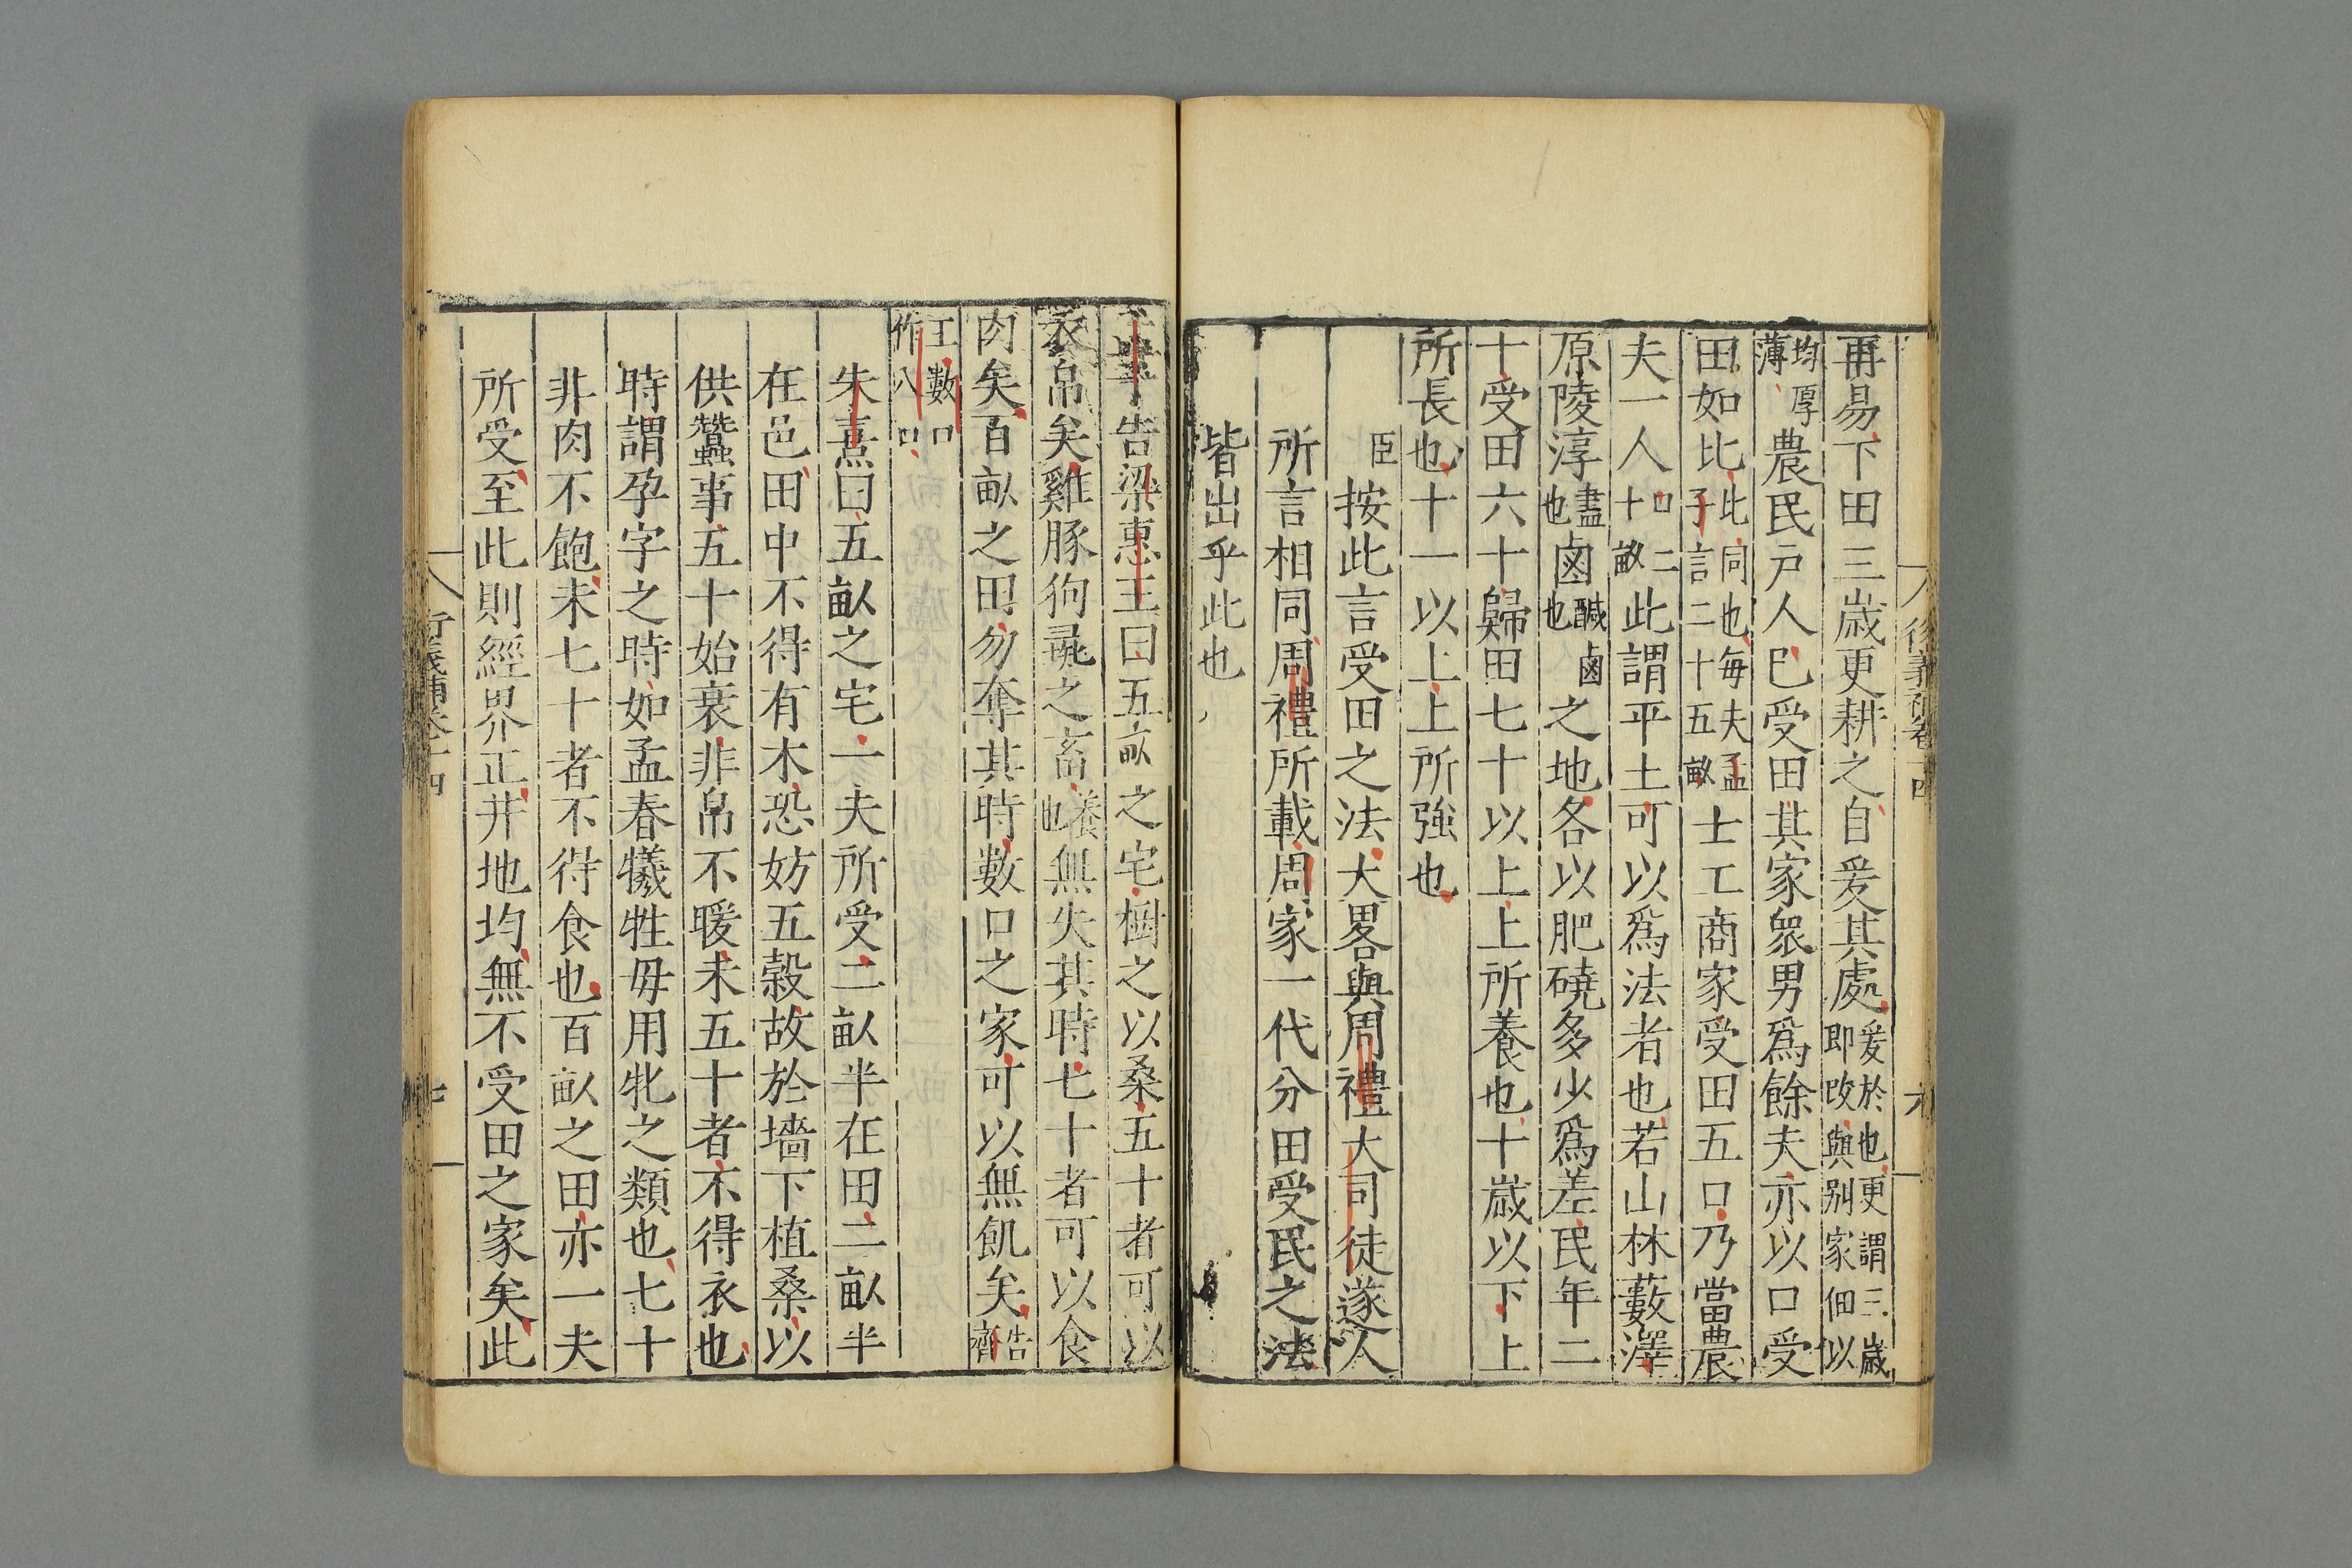 再易下田三歲更耕之自爰其處爰於也更謂三歲即改與别家佃以
均厚薄農民戶人已受田其家衆男爲餘夫亦以口受
田如比此同也每夫孟子言二十五畝士工商家受田五口乃當農
夫一人口二十畝此謂平土可以爲法者也若山林藪澤
原陵淳盡也鹵鹹鹵也之地各以肥磽多少爲差民年二
十受田六十歸田七十以上上所養也十歲以下上
所長也十一以上上所強也
臣按此言受田之法大畧與周禮大司徒遂人
所言相同周禮所載周家一代分田受民之法
皆出乎此也
孟子告梁惠王曰五畝之宅樹之以桑五十者可以
衣帛矣雞豚狗彘之畜養也無失其時七十者可以食
肉矣百畝之田勿奪其時數口之家可以無飢矣告齊
王數口作八口
朱熹曰五畝之宅一夫所受二畝半在田二畝半
在邑田中不得有木恐妨五穀故於墻下植桑以
供蠶事五十始衰非帛不暖未五十者不得衣也
時謂孕字之時如孟春犧牲毋用牝之類也七十
非肉不飽未七十者不得食也百畝之田亦一夫
所受至此則經界正井地均無不受田之家矣此